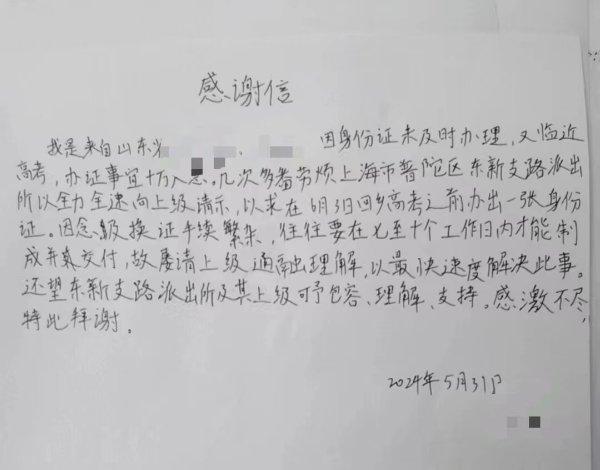 感谢信
我是来自山东 因身份证未及时办理，又临近
高考，办证事宜十万 急。几次多番劳烦上海市普陀区东新支路派出
所以全力全速向上级请示，以求在6月3日回乡高考之前办出一张身份
证。因 级换证手续繁杂，往往要在七至十个工作日内才能制
成并真交付，故屡请上级通 出理解，以最快速度解决此事。
还望东新支路派出所及其上级可予包容、理解、支持。感激不尽，
特此拜谢。
2024年5月31日